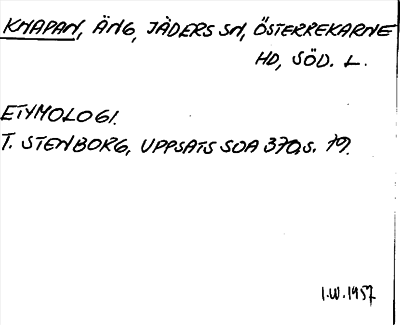 KNAPAN, ÄNG, JÄDERS SN, ÖSTERREKARNE
HD, SÖD. L.
ETYMOLOGI.
T. STENBORG, UPPSATS SOA 370, s. 19.
I.W. 1957